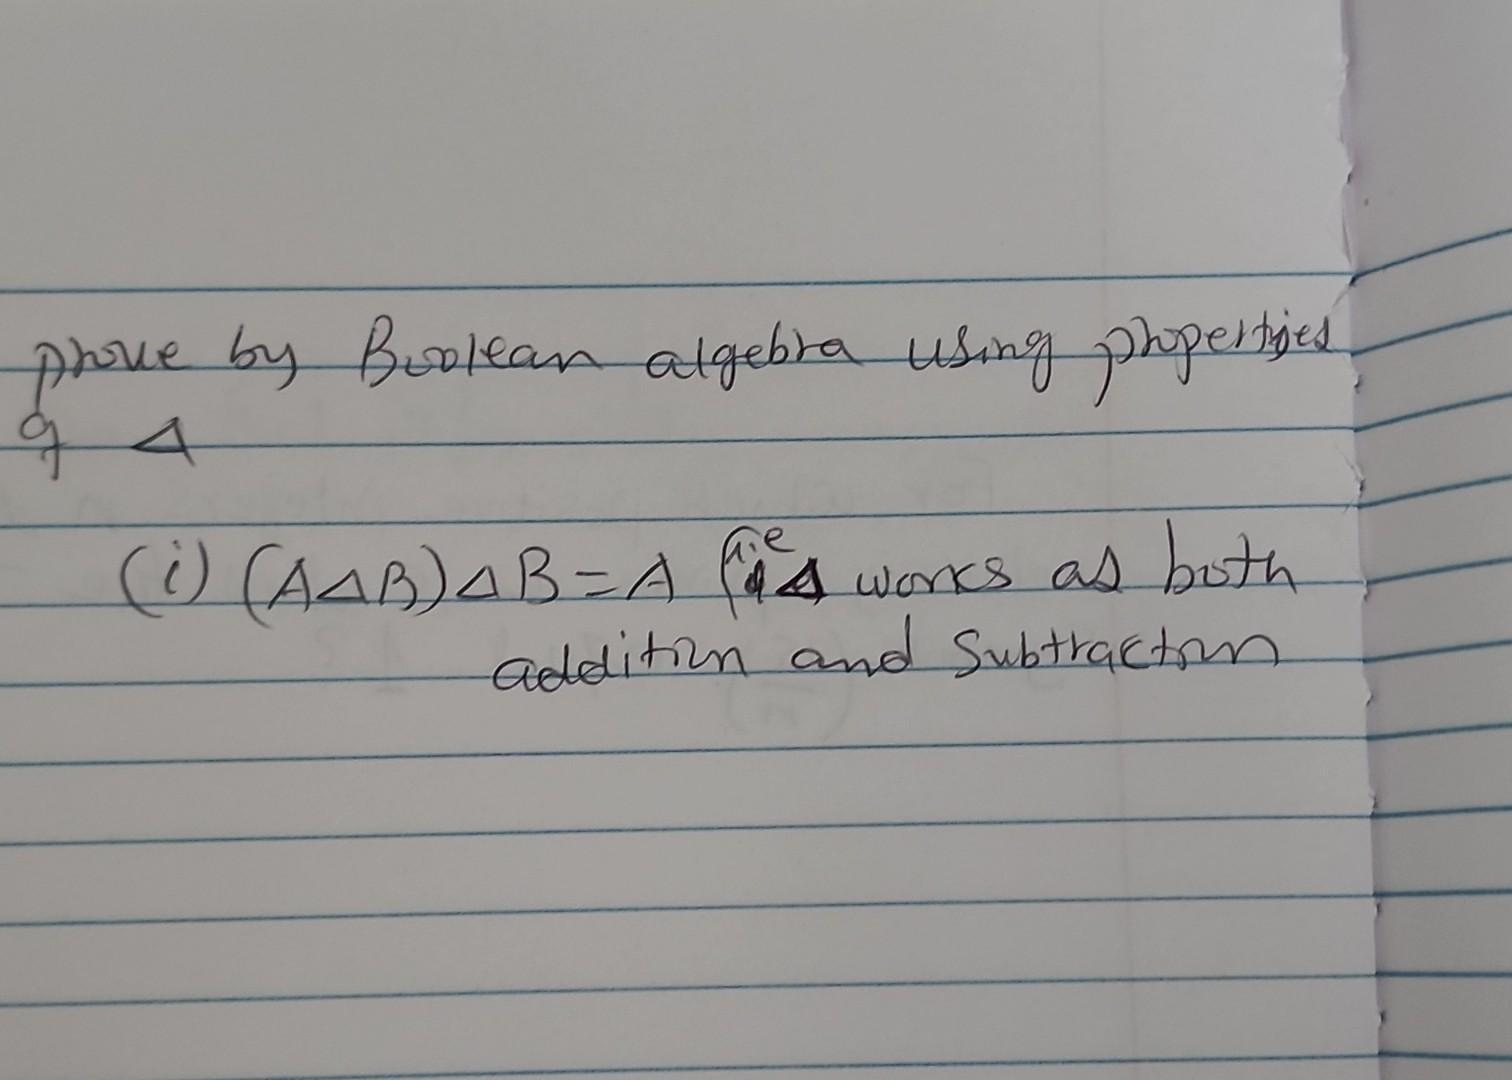 prove by Boolean algebra using properties
of Δ
(i) (AΔB)ΔB=A (i.e Δ works as both
addition and subtraction